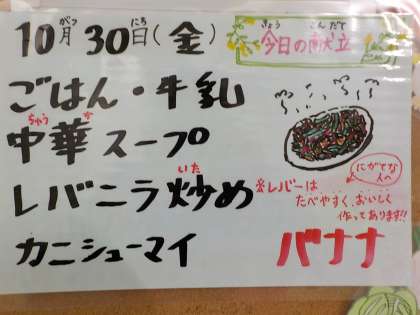 10月30日(金)
がつ にち
きょう こんだて
今日の献立
ごはん・牛乳
ちゅう か
中華スープ
いた
レバニラ炒め
カニシューマイ
にがてな
人へ
※レバーは
たべやすく、おいしく
作ってあります!!
バナナ